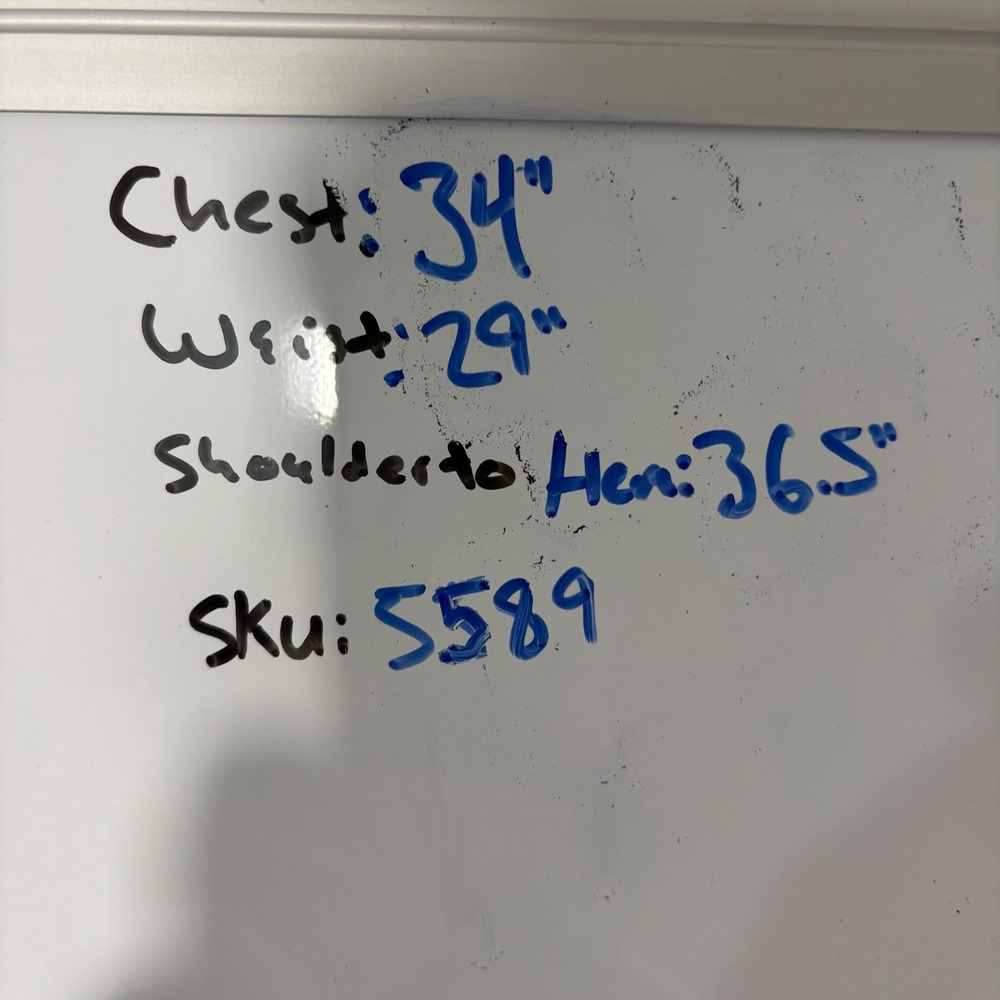 Chest: 34"
Waist: 29"
Shoulder to Hem: 36.5"
SKU: 5589